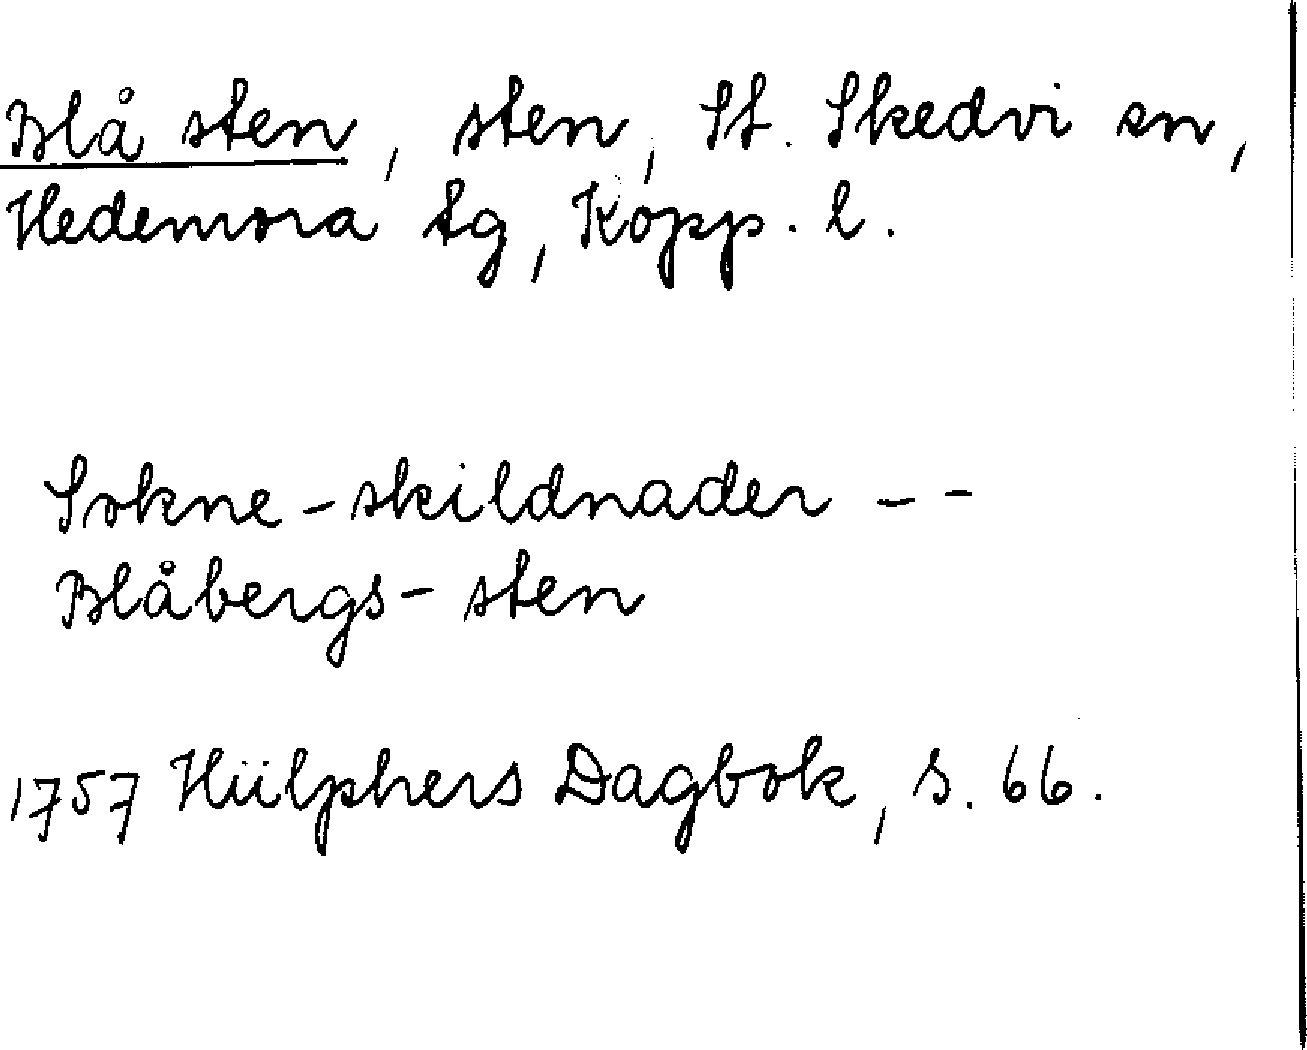 Blå sten, sten, St. Skedvi sn,
Hedemora tg, Kopp. l.
Sokne-skildnader --
Blåbergs-sten
1757 Hülphers Dagbok, s. 66.